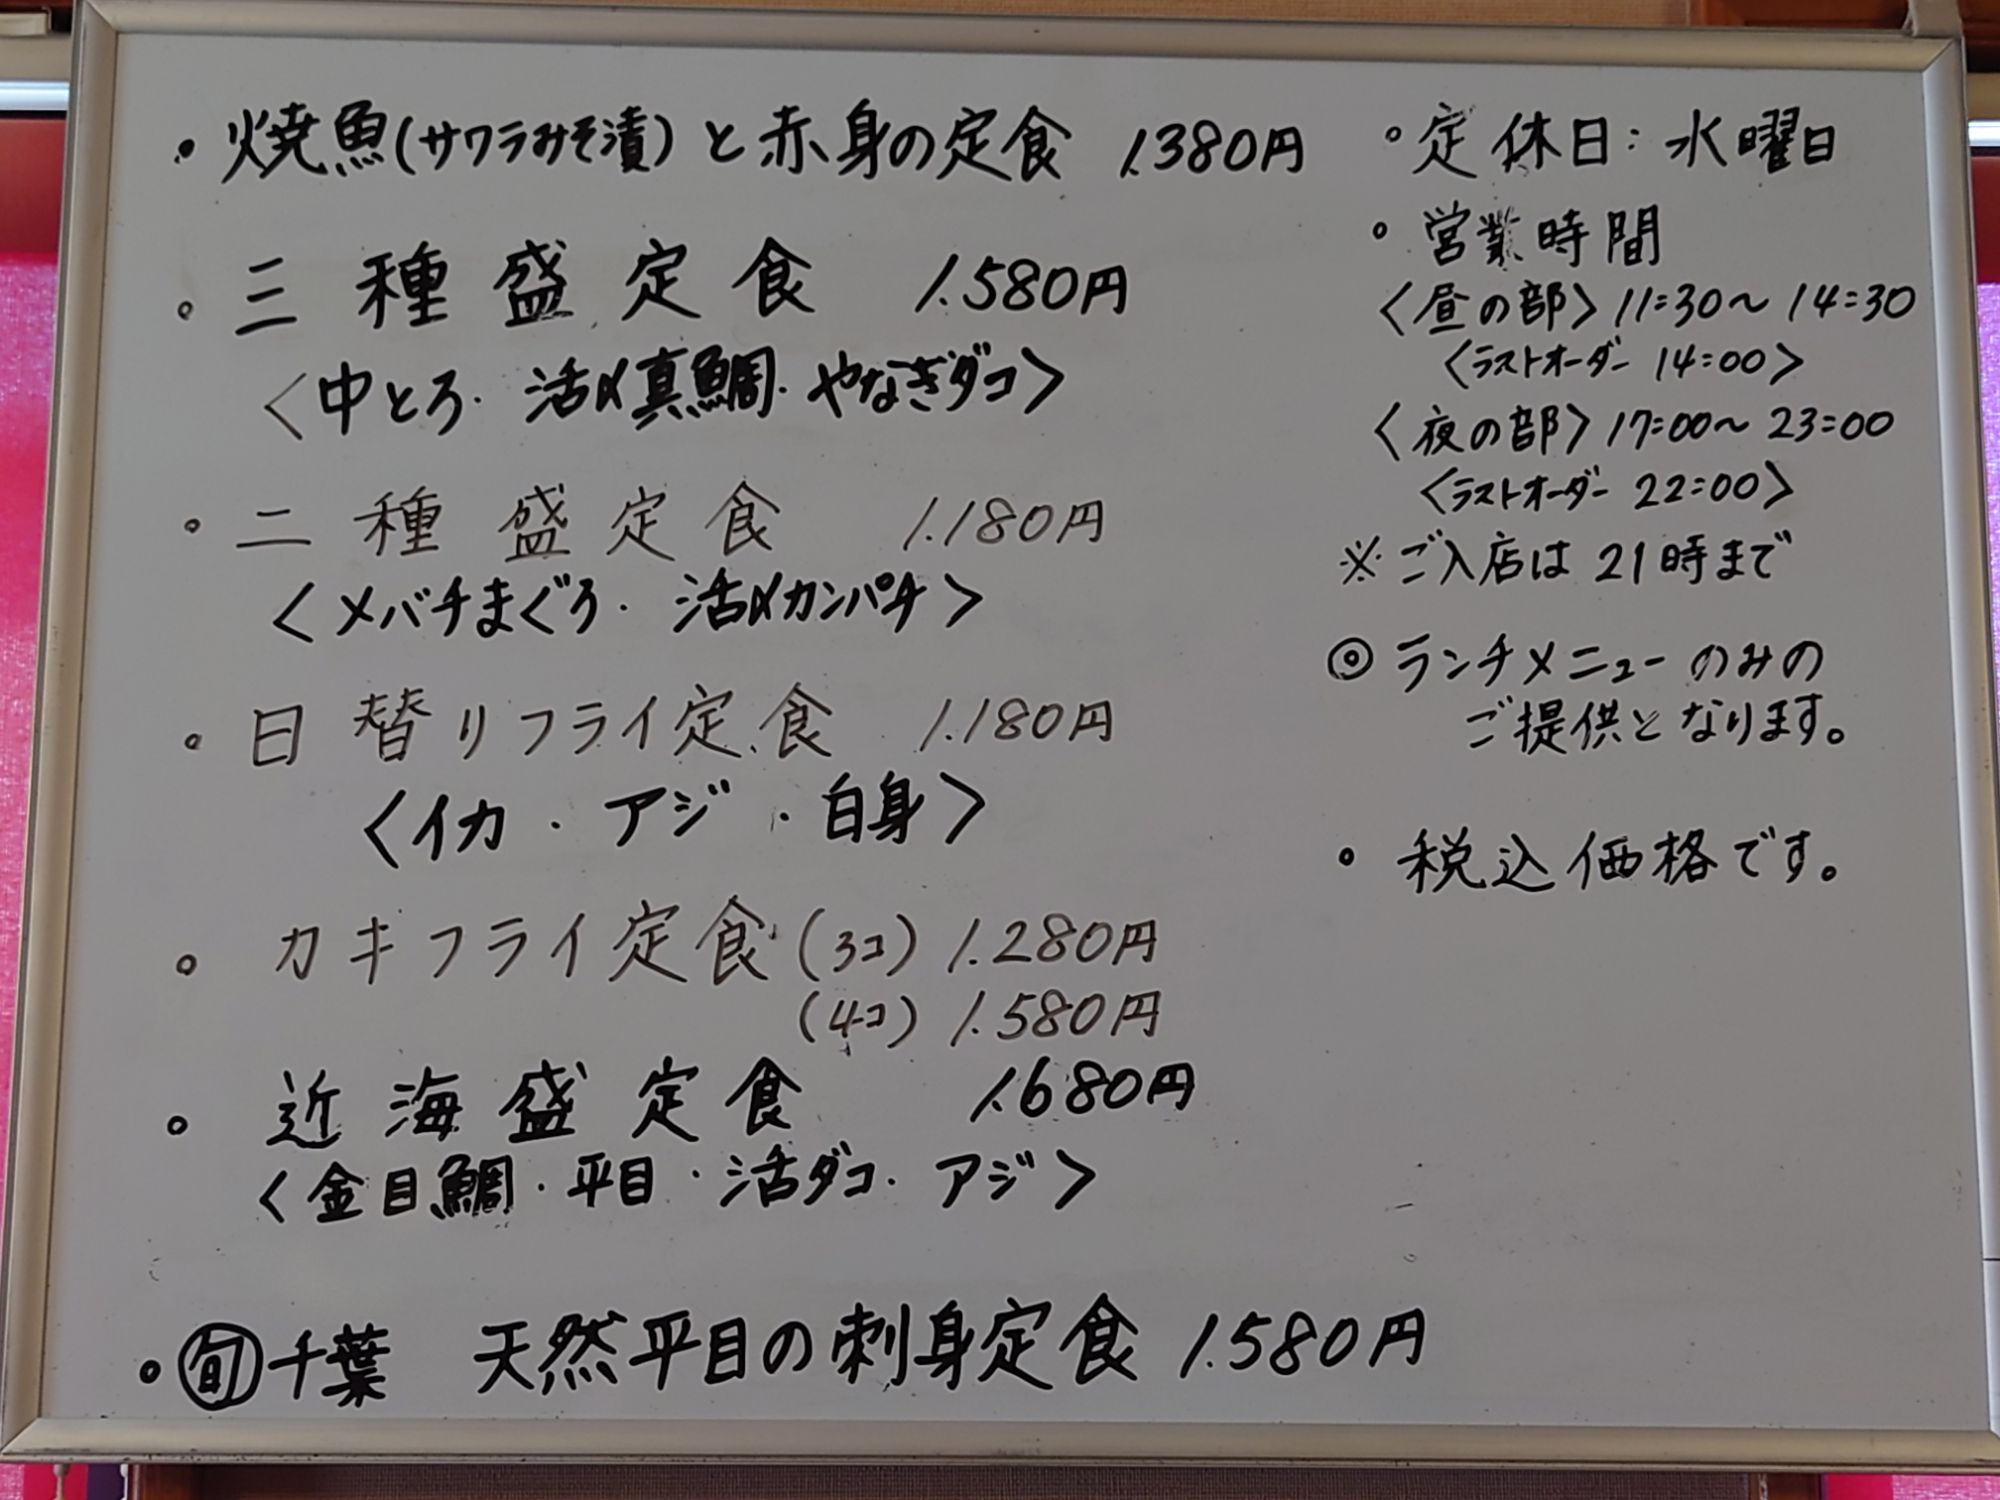 ・焼魚(サワラみそ漬)と赤身の定食 1.380円
。三種盛定食 1.580円
〈中とろ・活〆真鯛・やなぎダコ〉
。二種盛定食 1.180円
〈メバチまぐろ・活〆カンパチ〉
。日替りフライ定食 1.180円
〈イカ・アジ・白身〉
。カキフライ定食(3コ) 1.280円
(4コ) 1.580円
。近海盛定食 1.680円
〈金目鯛・平目・活ダコ・アジ〉
。㊬千葉 天然平目の刺身定食 1.580円
。定休日:水曜日
。営業時間
〈昼の部〉11:30〜14:30
〈ラストオーダー 14:00〉
〈夜の部〉17:00〜23:00
〈ラストオーダー 22:00〉
※ご入店は21時まで
◎ランチメニューのみの
ご提供となります。
。税込価格です。